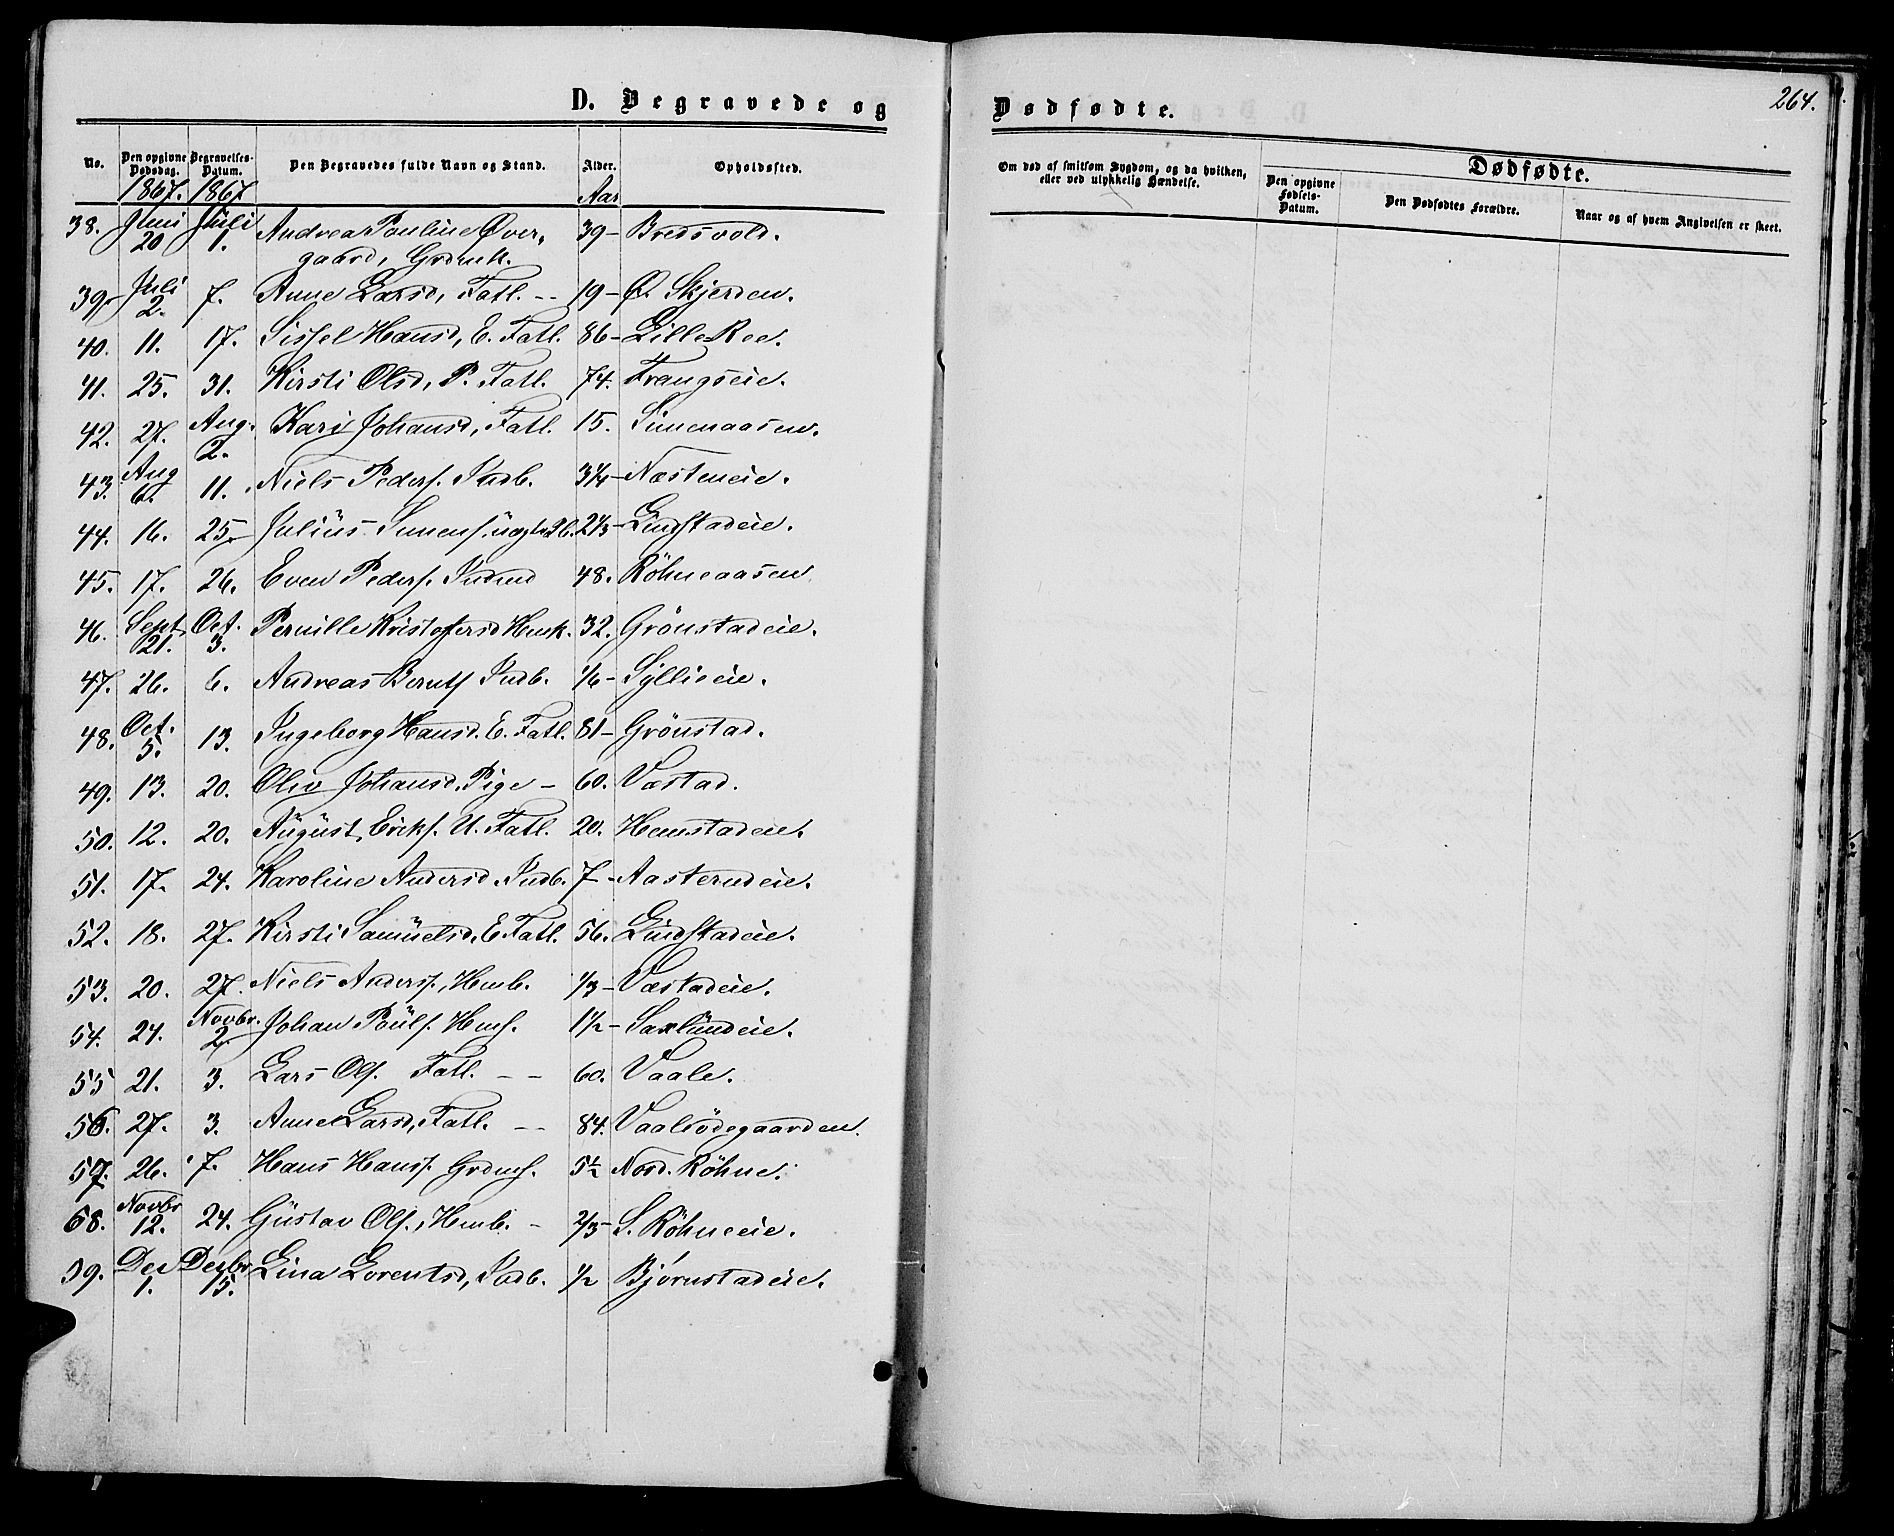 D. Begravede og
Dødfødte.
264.
No. Den opgivne Dødsdag. Begravelses-Datum. Den Begravedes fulde Navn og Stand. Alder. Opholdssted.
Om død af smitsom Sygdom, og da hvilken, eller ved ulykkelig Hændelse.
Dødfødte.
Den opgivne Fødsels-Datum. Den Dødfødtes Forældre. Naar og af hvem Angivelsen er skeet.
1867. 1867 Aar
38. Juni 20 Juli 1. Andrea Pauline Øver-
gaard, Grdmk. 39 - Bredsvold.
39. Juli 2. 7. Anne Larsd, Fatl. -- 19 - Ø. Skjerden.
40. 11. 17. Sissel Hansd, E. Fatl. 86 - Lille Roe.
41. 25. 31. Kirsti Olsd, P. Fatl. 74. Frangseie.
42. 27. Aug. 2. Kari Johansd, Fatl. 15. Simenaasen.
43. Aug 6. 11. Niels Peders. Indb. 3/4 - Næsteneie.
44. 16. 25. Julius Simens. 2 1/3 - Lindstadeie.
45. 17. 26. Even Peders. Indmd 48. Röhneaasen
46. Sept 21. Oct. 3. Pernille Kristofersd Hmk. 32. Grönstadeie.
47. 26. 6. Andreas Bernts Indb. 1/6 - Syllieie.
48. Oct. 5. 13. Ingeborg Hansd. E. Fatl. 81 - Grönstad.
49. 13. 20. Oliv Johansd. Pige - 60. Væstad.
50. 12. 20. August Eriks. U. Fatl. 20. Hemstadeie.
51. 17. 24. Karoline Andersd. Indb. 7 - Aasterudeie.
52. 18. 27. Kirsti Samuelsd. E. Fatl. 56. Lindstadeie.
53. 20. 27. Niels Anders., Hmb. 1/3 - Væstadeie.
54. 24. Novbr. 2. Johan Pouls. Hms. 1 1/2 - Saxlundeie.
55 21. 3. Lars Ols. Fatl. -- 60. Vaale.
56. 27. 3. Anne Larsd, Fatl. -- 84. Vaalsödegaarden.
57. 26. 7. Hans Hans. Grdms. 5 1/2 Nord. Röhne.
58. Novbr 12. 24. Gustav Ols., Hmb. - 2/3 - S. Röhneeie.
59. Dec 1. Decbr 15. Lina Lorentsd, Indb. 1/2 Bjørnstadeie.